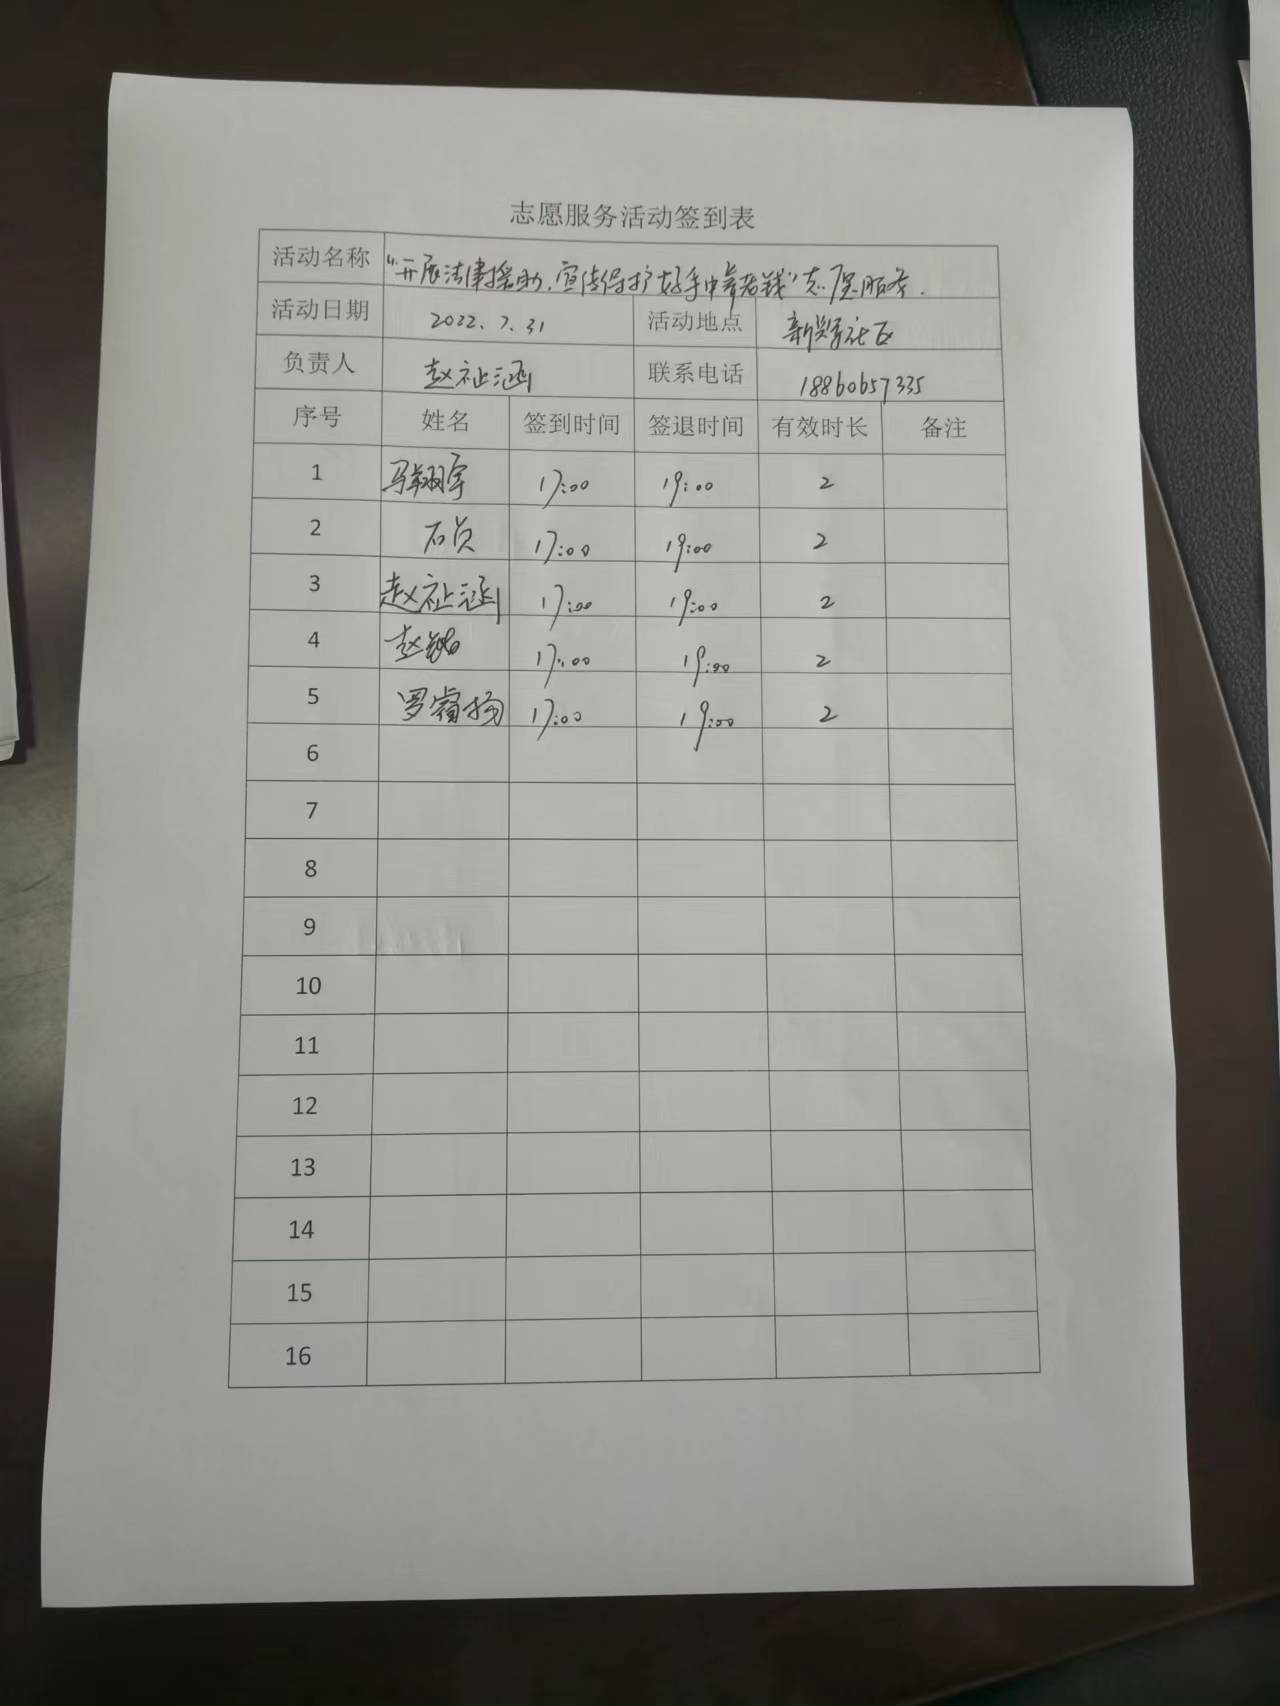 志愿服务活动签到表
活动名称 “开展法律援助，宣传保护好手中养老钱”志愿服务．
活动日期 2022.7.31 活动地点 新兴社区
负责人 赵祉涵 联系电话 18860657335
序号 姓名 签到时间 签退时间 有效时长 备注
1 马翔宇 17:00 19:00 2
2 石员 17:00 19:00 2
3 赵祉涵 17:00 19:00 2
4 赵 17:00 19:00 2
5 罗睿扬 17:00 19:00 2
6
7
8
9
10
11
12
13
14
15
16